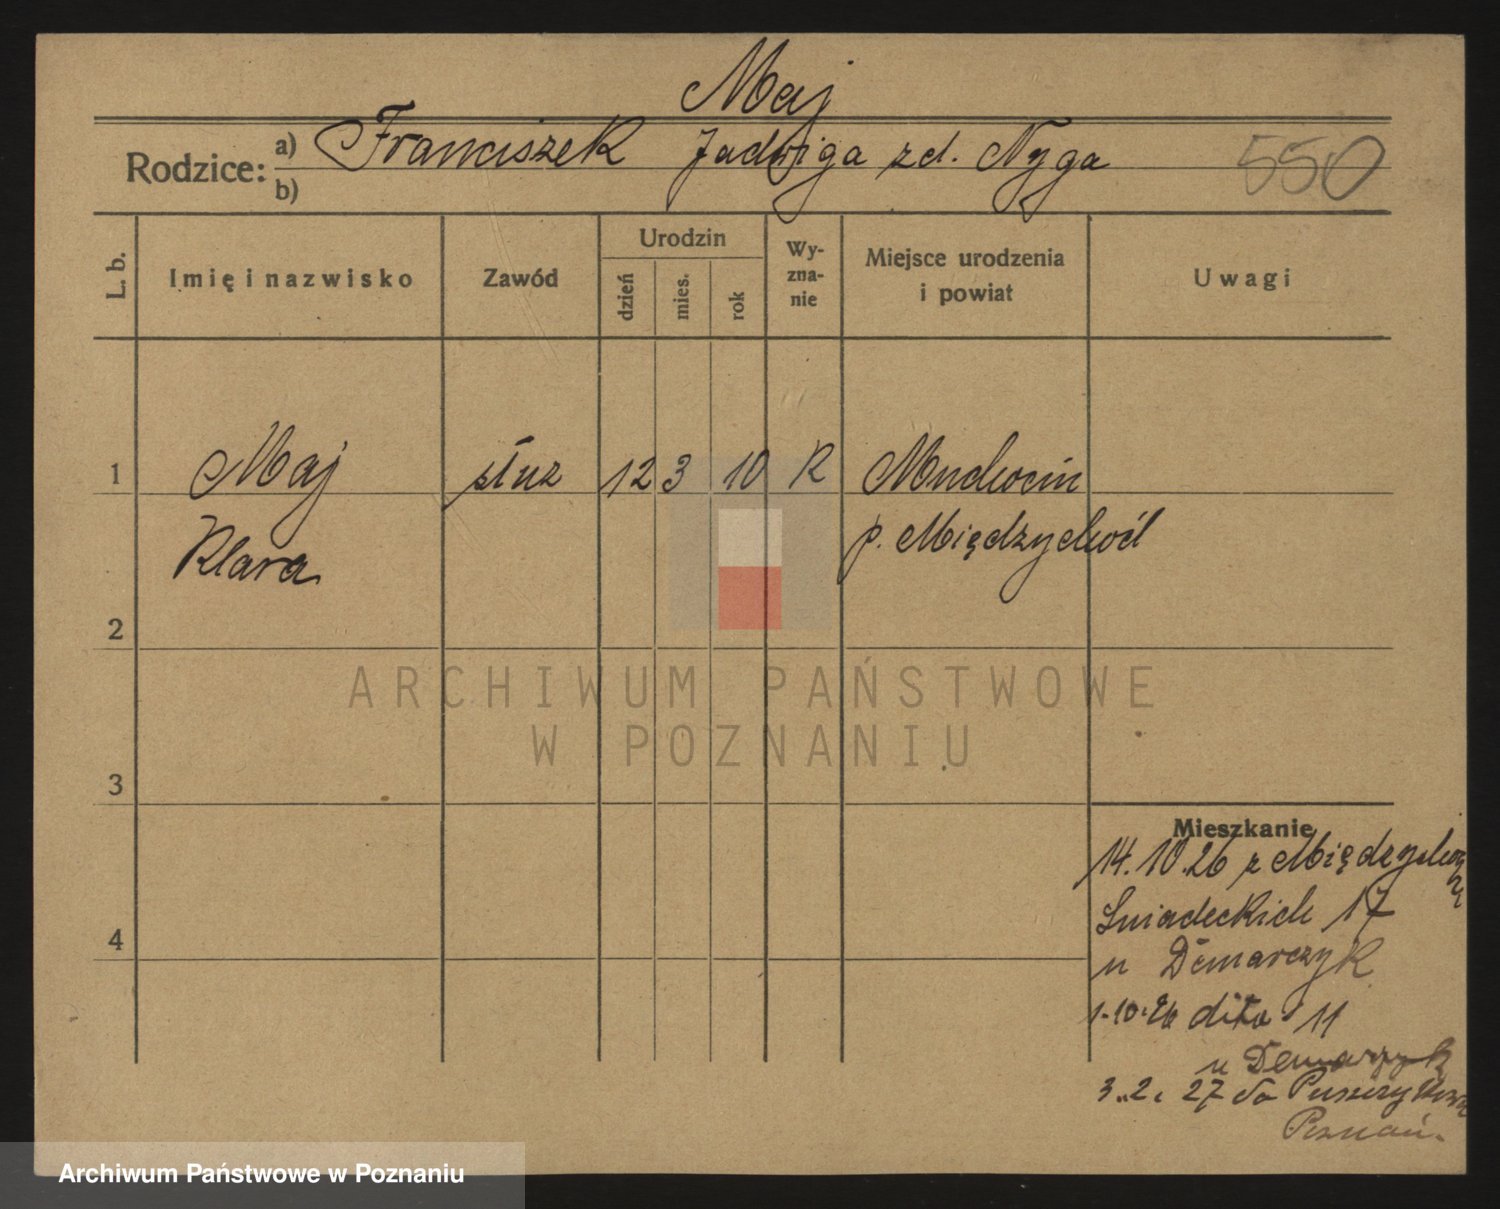 Maj
Rodzice: a) Franciszek Jadwiga zd. Nyga
b)
550
L. b.
Imię i nazwisko
Zawód
Urodzin
dzień
mies.
rok
Wy-
zna-
nie
Miejsce urodzenia
i powiat
Uwagi
1 Maj służ 12 3 10 R Muchocin
Klara p. Międzychód
2
3
4
Mieszkanie
14.10.26 z
Śniadeckich 17
u Demarczyk
1.10.26 dito 11
u Demarczyk
3.2.27 do
Poznań.
ARCHIWUM PAŃSTWOWE
W POZNANIU
Archiwum Państwowe w Poznaniu